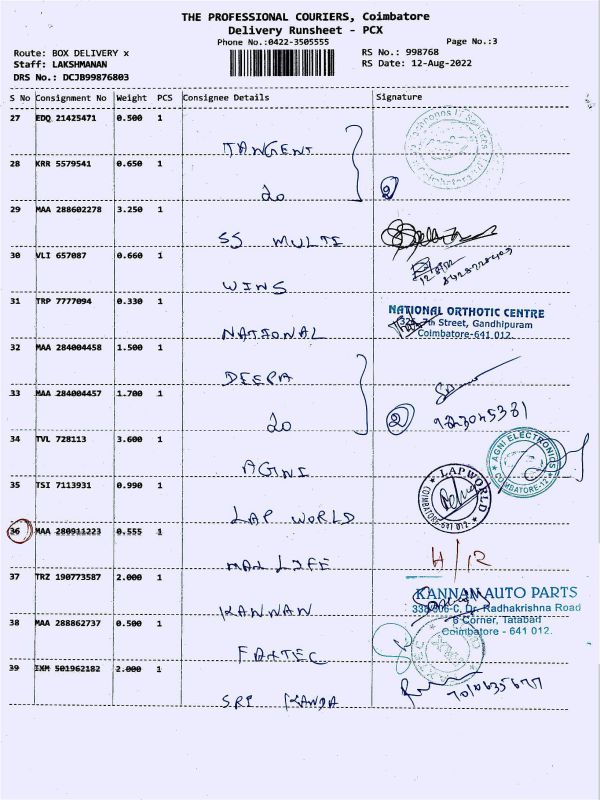 THE PROFESSIONAL COURIERS, Coimbatore
Delivery Runsheet - PCX
Phone No.:0422-3505555
Page No.:3
Route: BOX DELIVERY x
RS No.: 998768
Staff: LAKSHMANAN
RS Date: 12-Aug-2022
DRS No.: DCJB99876803
S No Consignment No Weight PCS Consignee Details Signature
27 EDQ 21425471 0.500 1
TANGENT
28 KRR 5579541 0.650 1
do
2
29 MAA 288602278 3.250 1
SS MULTI
30 VLI 657087 0.660 1
WINS
31 TRP 7777094 0.330 1
NATIONAL ORTHOTIC CENTRE
7th Street, Gandhipuram
Coimbatore-641 012.
NATIONAL
32 MAA 284004458 1.500 1
DEEPA
33 MAA 284004457 1.700 1
do
2
34 TVL 728113 3.600 1
AGNI ELECTRONICS
COIMBATORE-12
AGNI
35 TSI 7113931 0.990 1
LAP WORLD
COIMBATORE-641 012.
LAP WORLD
36 MAA 280911223 0.555 1
MAX LIFE
37 TRZ 190773587 2.000 1
KANNAM AUTO PARTS
Dr. Radhakrishna Road
Corner, Tatabad
Coimbatore - 641 012.
KANNAN
38 MAA 288862737 0.500 1
FAXTEC
39 IXM 501962182 2.000 1
SRI KANDA